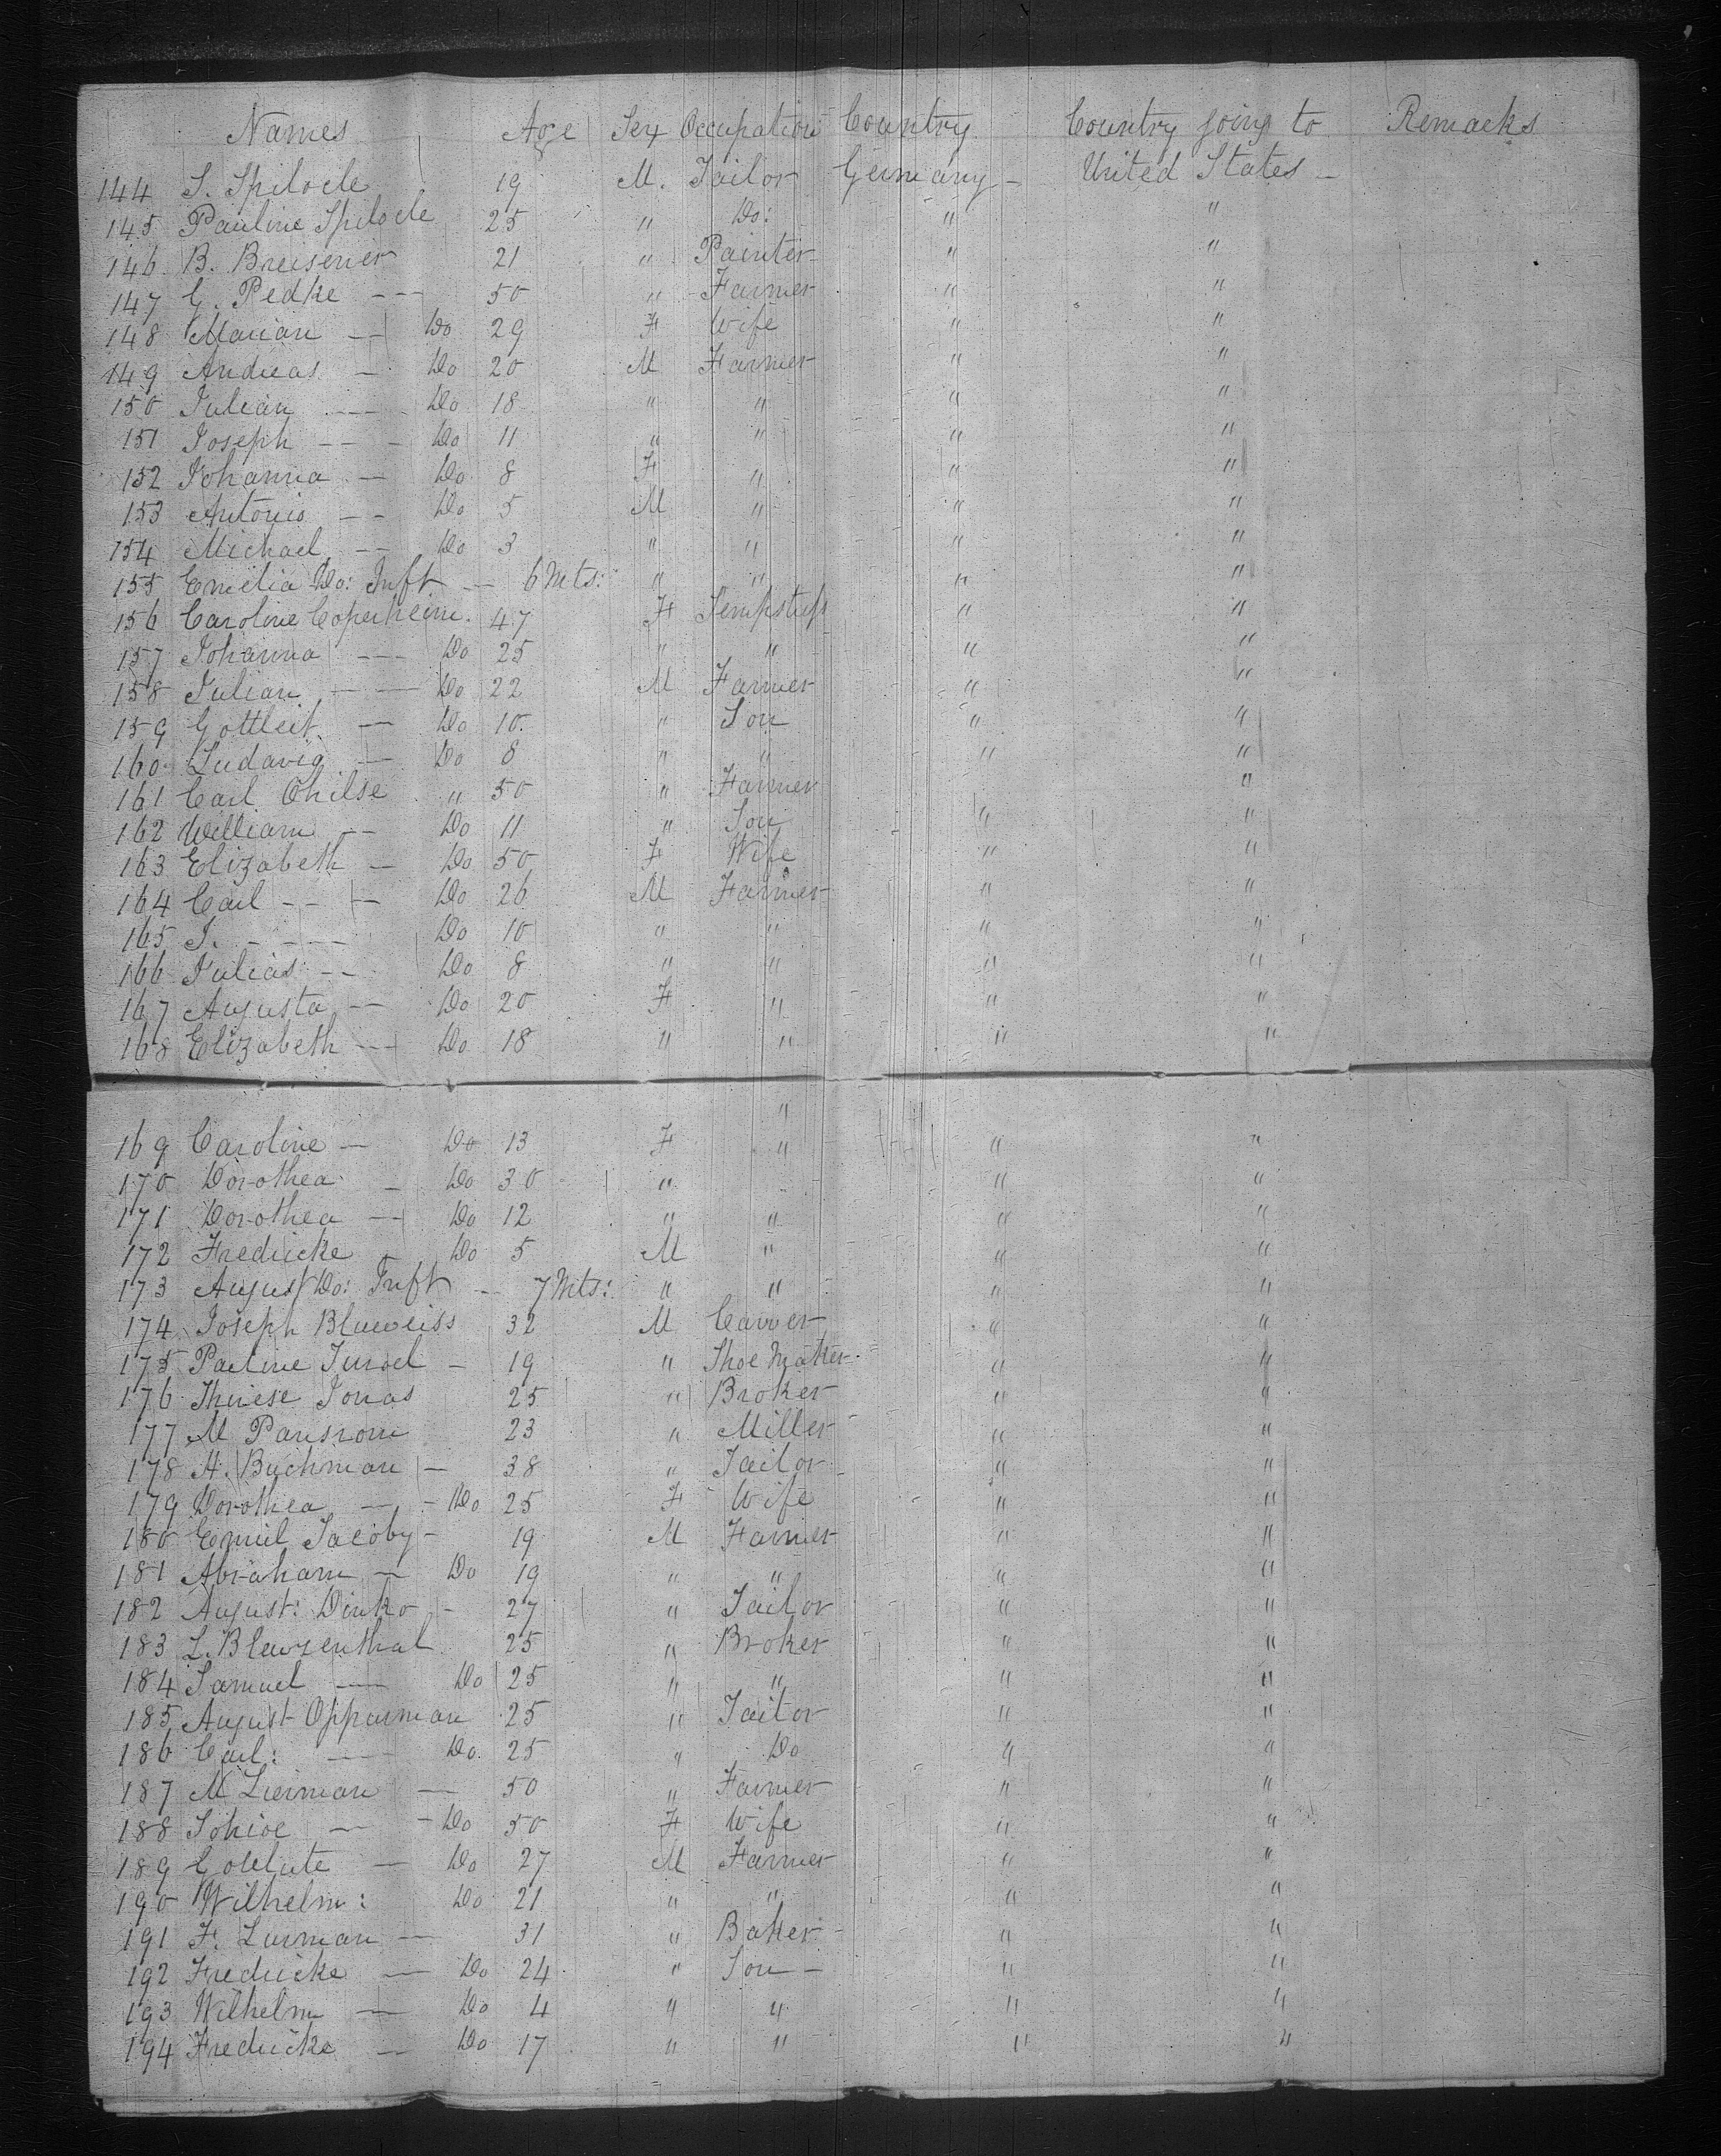 Names Age Sex Occupation Country Country going to Remarks
144 S. Spilocle 19 M. Tailor Germany - United States -
145 Pauline Spilocle 25 " Do: " "
146 B. Breisener 21 " Painter " "
147 G. Pedke --- 50 " Farmer " "
148 Marian -- Do 29 F Wife " "
149 Andreas - Do 20 M Farmer " "
150 Julian --- Do 18 " " " "
151 Joseph --- Do 11 " " " "
152 Johanna - Do 8 F " " "
153 Antonio -- Do 5 M " " "
154 Michael -- Do 3 " " " "
155 Emelia Do: Inft - 6 Mts: " " " "
156 Caroline Coperheim. 47 F Sempstess " "
157 Johanna --- Do 25 " " " "
158 Julian --- Do 22 M Farmer " "
159 Gottleit - Do 10. " Son " "
160 Ludavig - Do 8 " " " "
161 Carl Ohilse " 50 " Farmer "
162 William -- Do 11 " Son " "
163 Elizabeth - Do 50 F Wife " "
164 Carl --- Do 26 M Farmer " "
165 J. ---- Do 10 " " " "
166 Julias -- Do 8 " " " "
167 Augusta -- Do 20 F " " "
168 Elizabeth -- Do 18 " " " "
"
169 Caroline - Do 13 F " " "
170 Dorothea - Do 30 " " "
171 Dorothea -- Do 12 " " " "
172 Fredricke - Do 5 M " " "
173 August Do: Inft - 7 Mts: " " " "
174 Joseph Blueweiss 32 M Carver " "
175 Pauline 19 " Shoe Maker " "
176 Therese Jonas 25 " Broker " "
177 M 23 " Miller " "
178 H. Buchman - 38 " Tailor " "
179 Dorothea -- Do 25 F Wife " "
180 Emil Jacoby - 19 M Farmer " "
181 Abraham - Do 19 " " " "
182 August: Dinko - 27 " Tailor " "
183 L. Blewzenthal 25 " Broker " "
184 Samuel --- Do 25 " " " "
185 August Opparman 25 " Tailor " "
186 Carl: --- Do. 25 " Do " "
187 M Lierman - 50 " Farmer " "
188 -- Do 50 F Wife " "
189 - Do 27 M Farmer " "
190 Wilhelm: Do 21 " " " "
191 F. Lurman - 31 " Baker - " "
192 Fredricke - Do 24 " Son - " "
193 Wilhelm - Do 4 " " " "
194 Fredricke - Do 17 " " " "